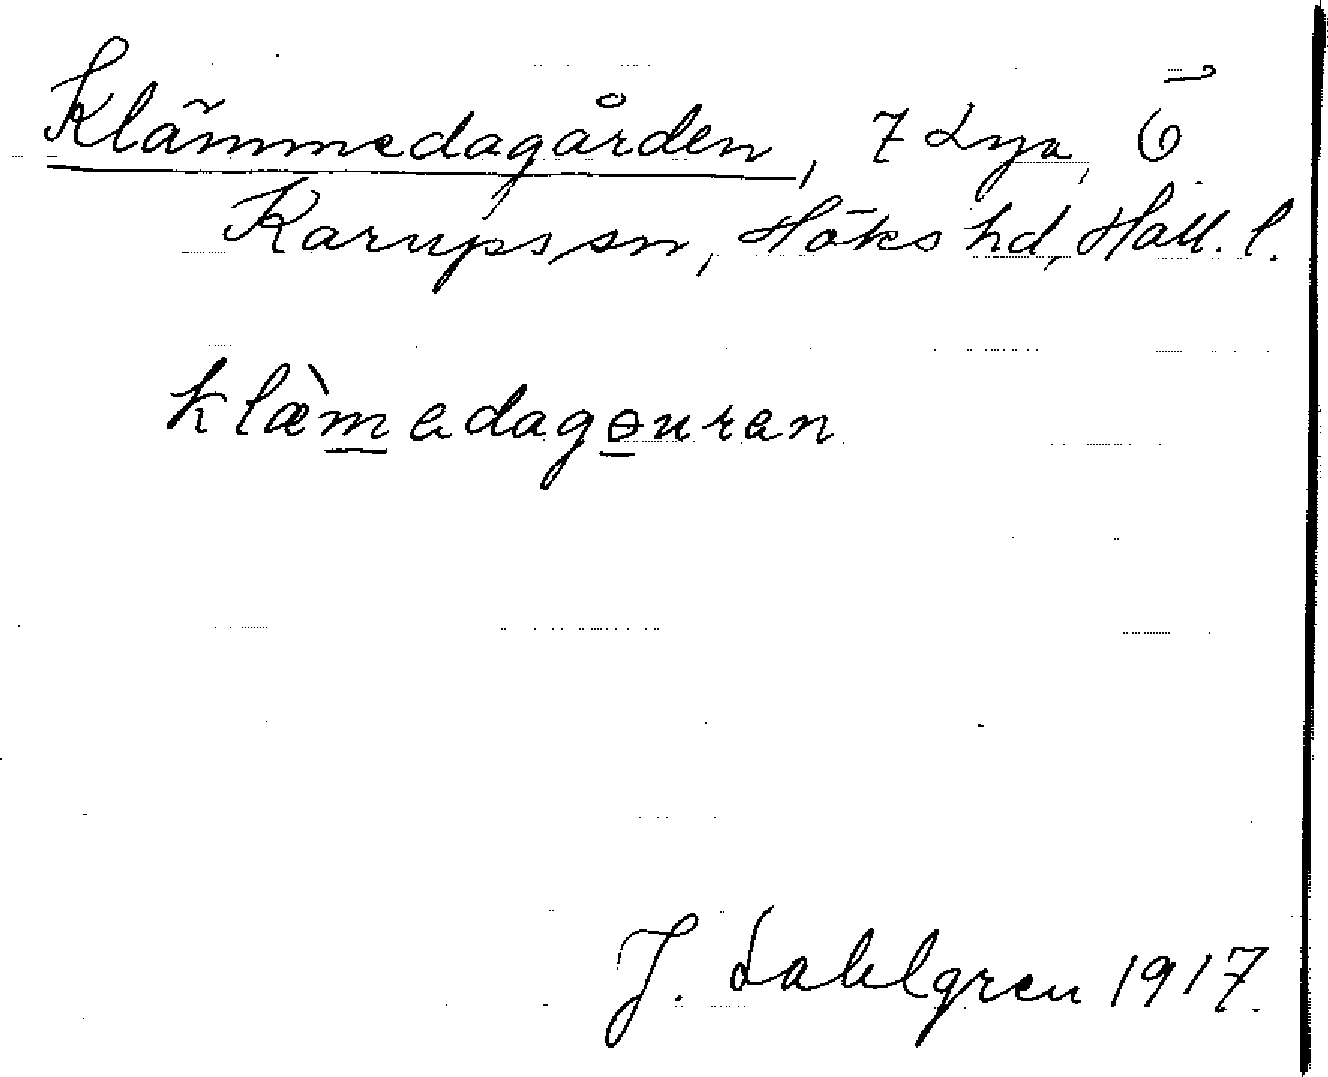 Klämmedagården, 7 Lya, Ö
Karups sn, Höks hd, Hall. l.
klæ̀m̲adago̲uran
J. Sahlgren 1917.